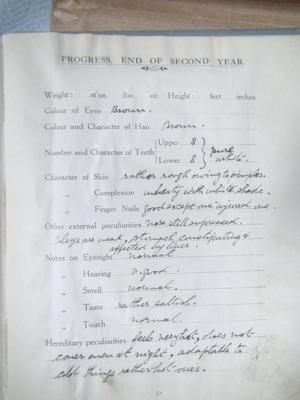 PROGRESS. END OF SECOND YEAR.
Weight : st'ns. lbs. oz. Height : feet inches
Colour of Eyes Brown.
Colour and Character of Hair Brown.
Number and Character of Teeth { Upper 8 } pure
Lower 8 } white.
Character of Skin rather rough owing to pimples.
„ Complexion wheaty with white shade.
„ Finger Nails good except one injured one.
Other external peculiarities nose still depressed.
legs are weak, stomach constipating &
affected by liver.
Notes on Eyesight normal
„ Hearing v. good.
„ Smell normal.
„ Taste rather saltish.
„ Touch normal.
Hereditary peculiarities feels very hot, does not
cover even at night, adaptable to
cold things rather hot ones.